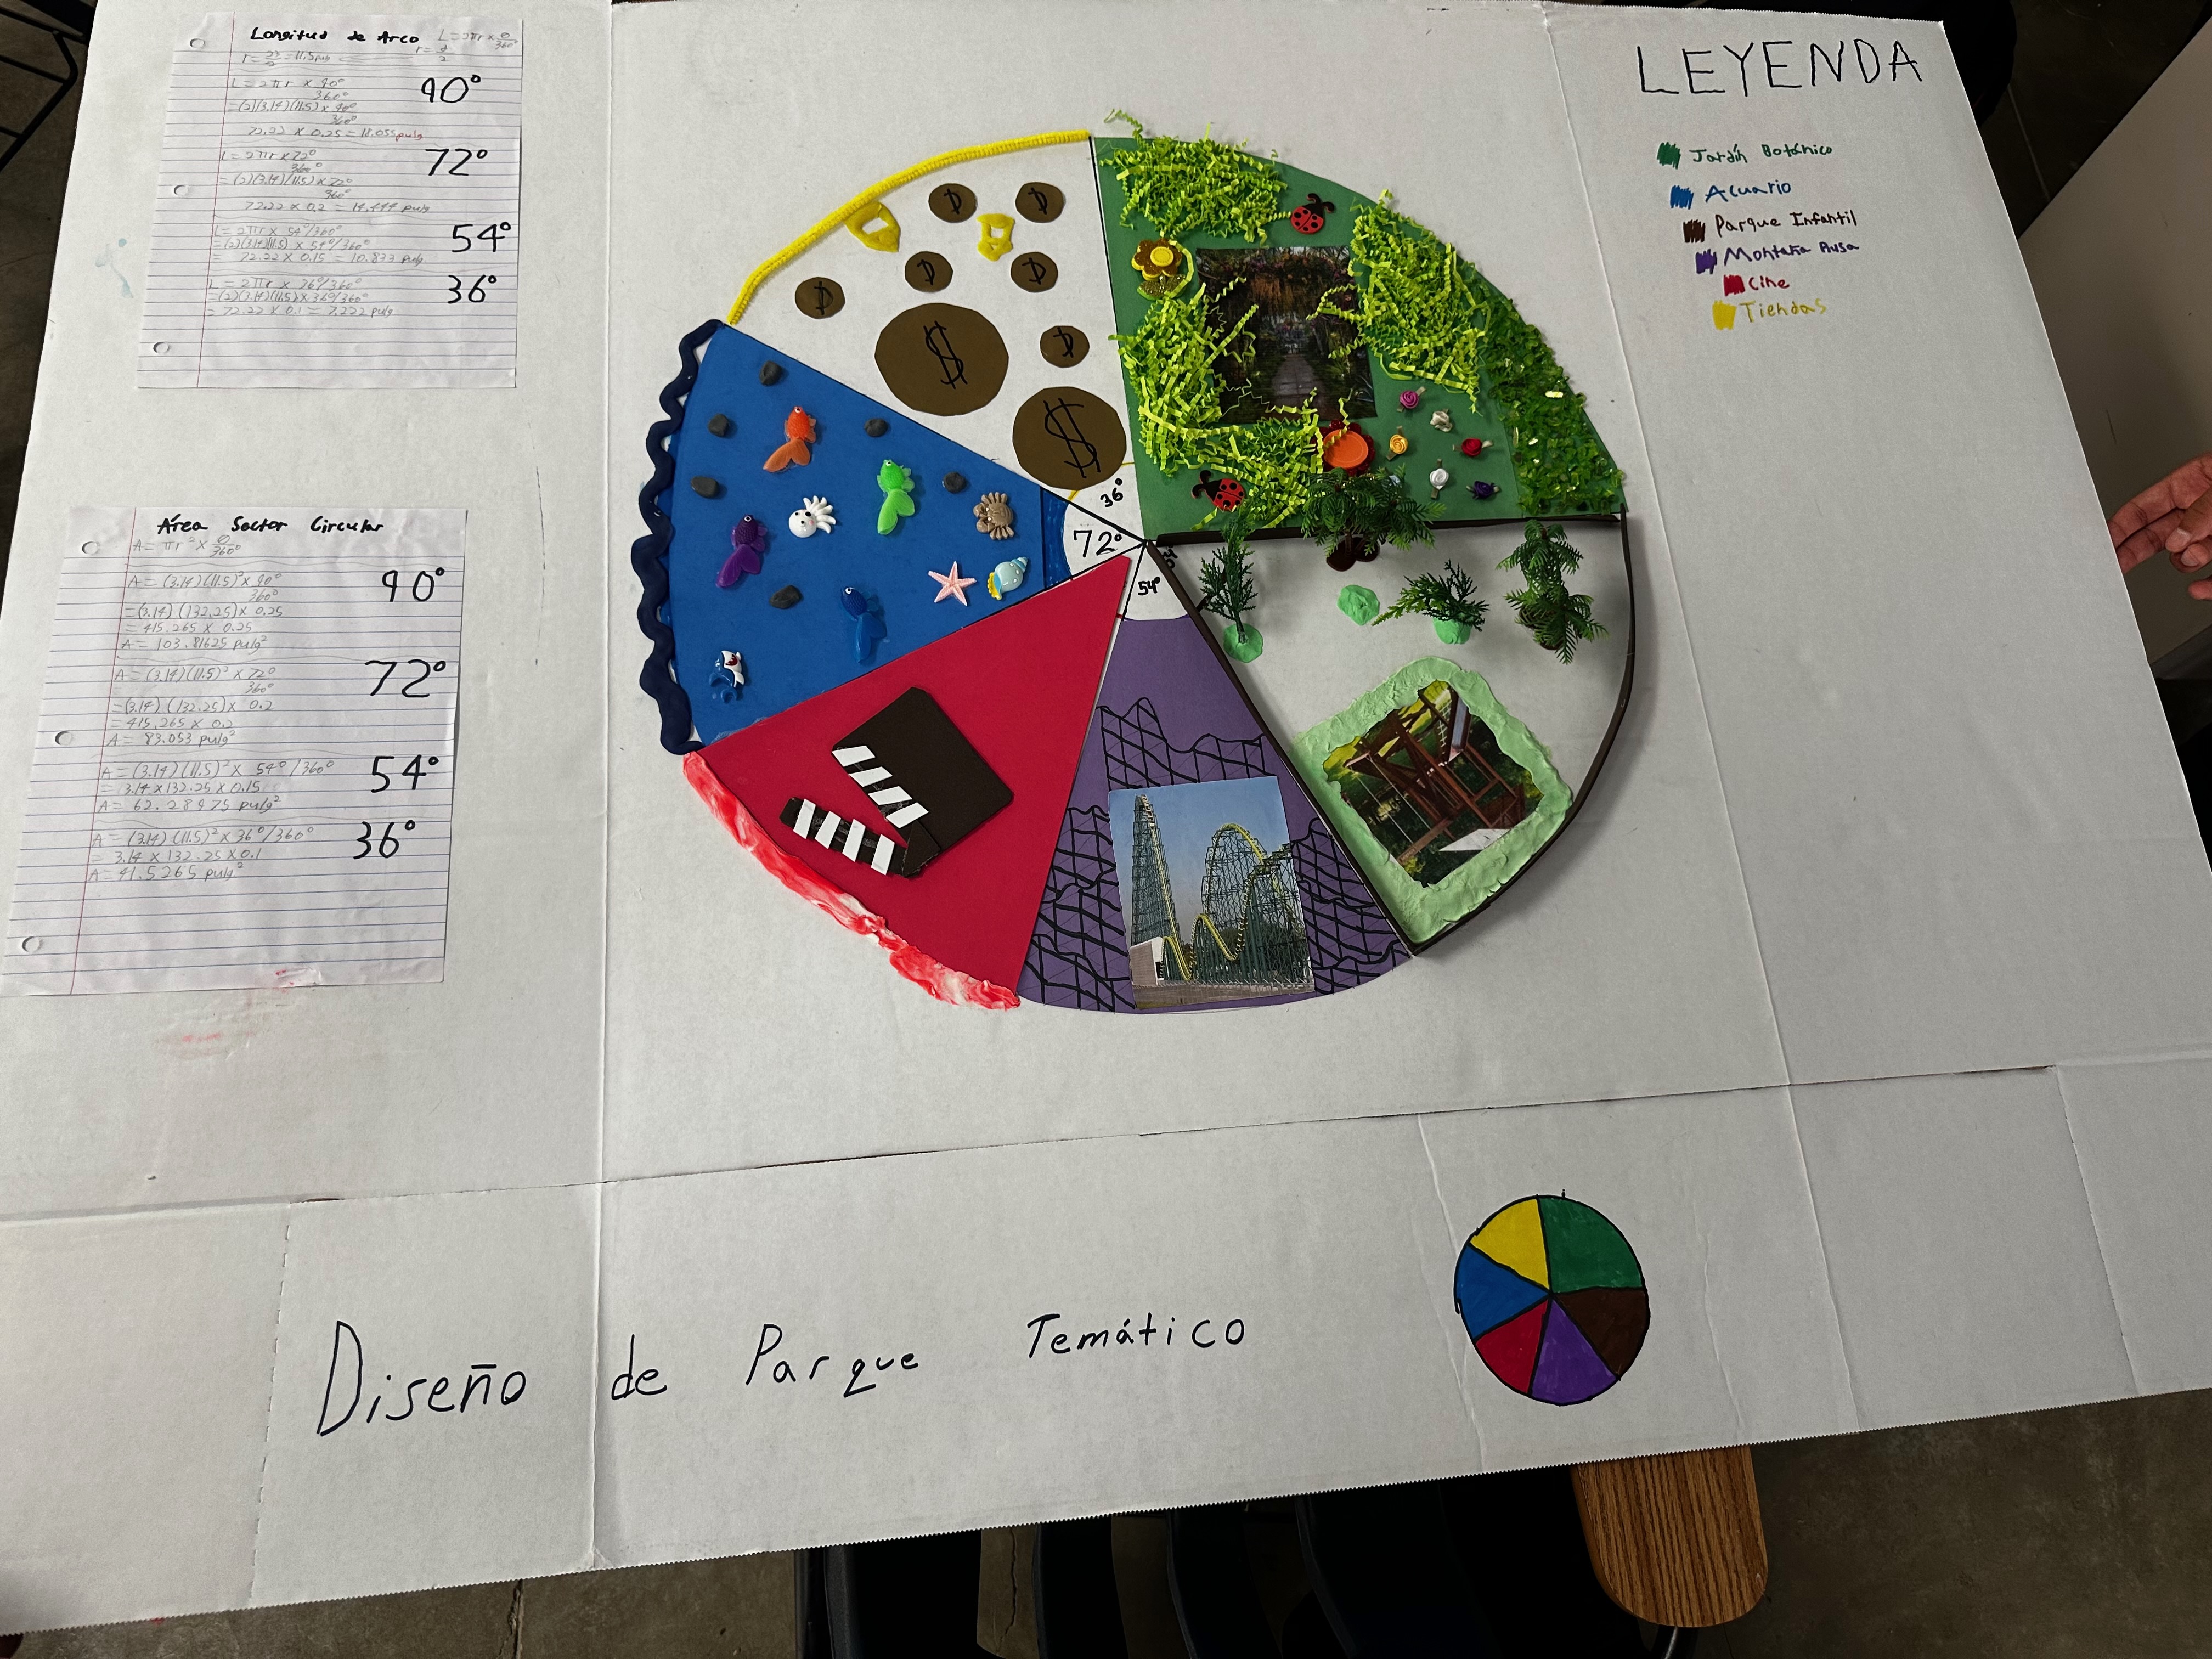 Longitud de Arco L=2πr×θ/360°
r=23/2=11.5pulg r=d/2
L=2πr × 90°/360° 90°
=(2)(3.14)(11.5)× 90°/360°
72.22 × 0.25 = 18.055pulg
L=2πr×72°/360° 72°
=(2)(3.14)(11.5)×72°/360°
72.22 × 0.2 = 14.444 pulg
L=2πr × 54°/360° 54°
=(2)(3.14)(11.5) × 54°/360°
= 72.22 × 0.15 = 10.833 pulg
L=2πr × 36°/360° 36°
=(2)(3.14)(11.5)×36°/360°
=72.22 × 0.1 = 7.222 pulg
Área Sector Circular
A=πr²×θ/360°
A=(3.14)(11.5)²×90°/360° 90°
=(3.14)(132.25)×0.25
=415.265 × 0.25
A= 103.81625 pulg²
A=(3.14)(11.5)²×72°/360° 72°
=(3.14)(132.25)× 0.2
=415.265 × 0.2
A= 83.053 pulg²
A=(3.14)(11.5)²× 54°/360° 54°
= 3.14×132.25×0.15
A= 62.28975 pulg²
A=(3.14)(11.5)²×36°/360° 36°
= 3.14 × 132.25×0.1
A=41.5265 pulg²
$
$
36°
72°
54°
LEYENDA
Jardín Botánico
Acuario
Parque Infantil
Montaña Rusa
Cine
Tiendas
Diseño de Parque Temático